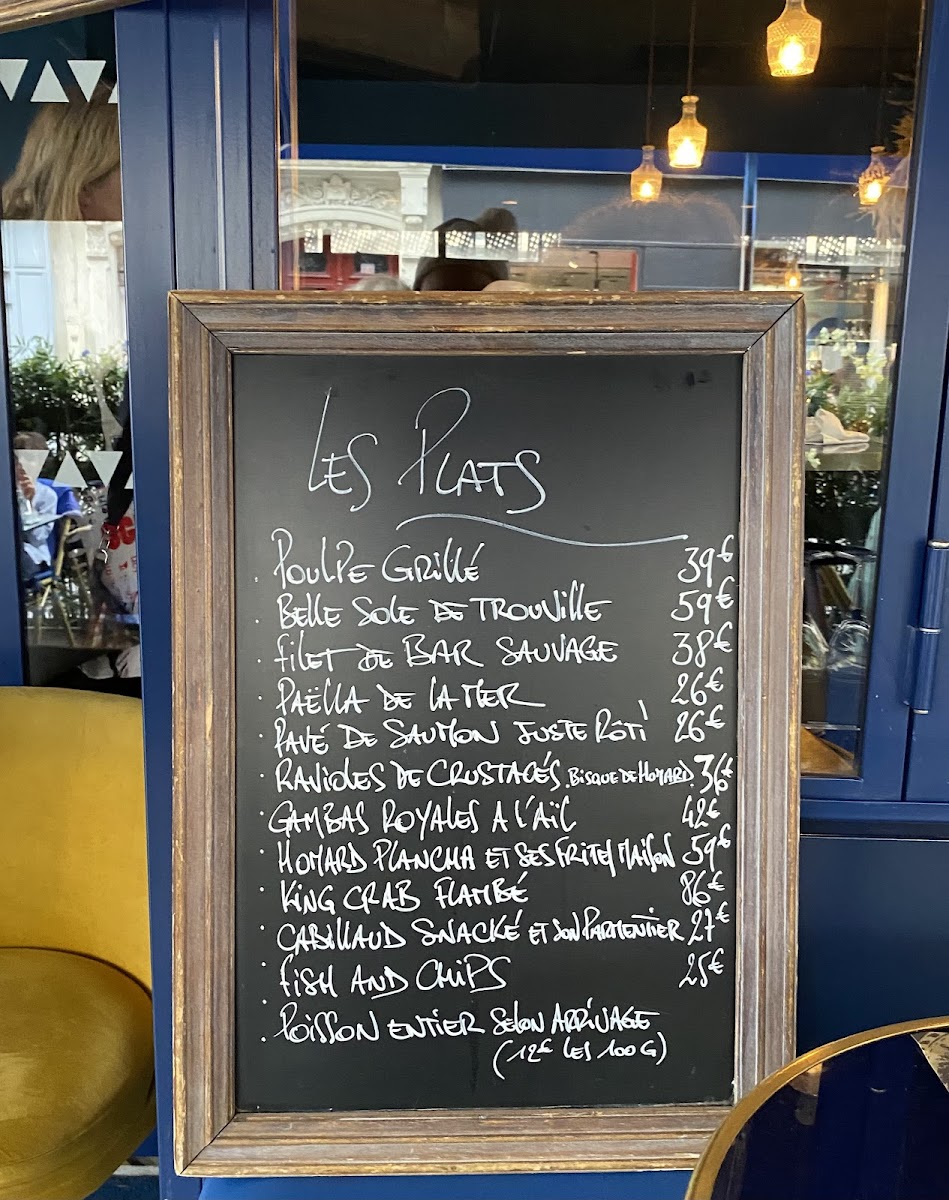 LES PLATS
. POULPE GRILLÉ 39€
. BELLE SOLE DE TROUVILLE 59€
. FILET DE BAR SAUVAGE 38€
. PAËLLA DE LA MER 26€
. PAVÉ DE SAUMON JUSTE RÔTI 26€
. RAVIOLES DE CRUSTACÉS. BISQUE DE HOMARD. 36€
. GAMBAS ROYALES A L'AÏL 42€
. HOMARD PLANCHA ET SES FRITES MAISON 59€
. KING CRAB FLAMBÉ 86€
. CABILLAUD SNACKÉ ET SON PARMENTIER 27€
. FISH AND CHIPS 25€
. POISSON ENTIER SELON ARRIVAGE
(12€ LES 100G)